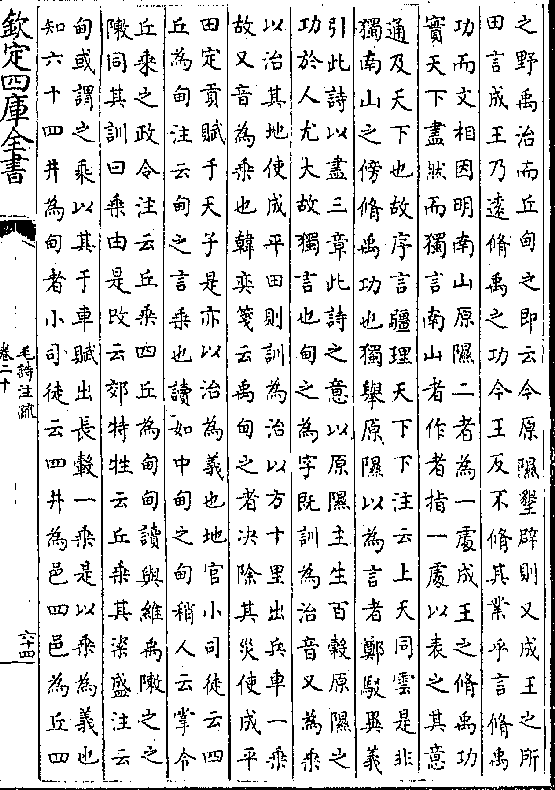 之野禹治而丘甸之即云今原隰墾辟則又成王之所
田言成王乃遠脩禹之功今王反不脩其業乎言脩禹
功而文相因明南山原隰二者為一處成王之脩禹功
實天下盡然而獨言南山者作者指一處以表之其意
通及天下也故序言疆理天下下注云上天同雲是非
獨南山之傍脩禹功也獨舉原隰以為言者鄭駮異義
引此詩以盡三章此詩之意以原隰主生百穀原隰之
功於人尤大故獨言也甸之為字既訓為治音又為乘
以治其地使成平田則訓為治以方十里出兵車一乘
故又音為乘也韓奕箋云禹甸之者决除其災使成平
田定貢賦于天子是亦以治為義也地官小司徒云四
丘為甸注云甸之言乘也讀如中甸之甸稍人云掌令
丘乘之政令注云丘乘四丘為甸甸讀與維禹敶之之
敶同其訓曰乘由是改云郊特牲云丘乘其粢盛注云
甸或謂之乘以其于車賦出長轂一乘是以乘為義也
知六十四井為甸者小司徒云四井為邑四邑為丘四
欽定四庫全書
毛詩注疏
卷二十
六十四